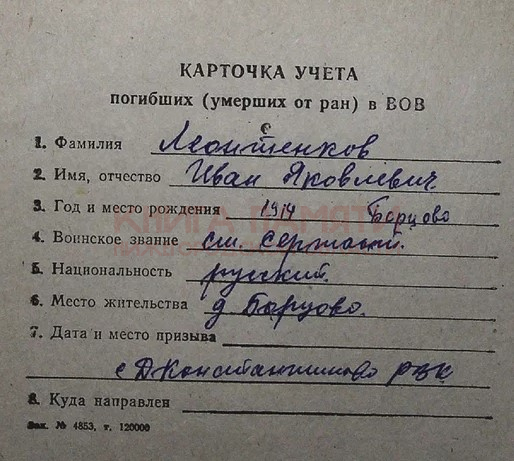 КАРТОЧКА УЧЕТА
погибших (умерших от ран) в ВОВ
1. Фамилия Леонтенков
2. Имя, отчество Иван Яковлевич
3. Год и место рождения 1914 Борцово
КНИГА ПАМЯТИ
4. Воинское звание ст. сержант.
5. Национальность русский.
6. Место жительства д Борцово.
7. Дата и место призыва
с Д Константиново РВК
8. Куда направлен
Зак. № 4853, т. 120000